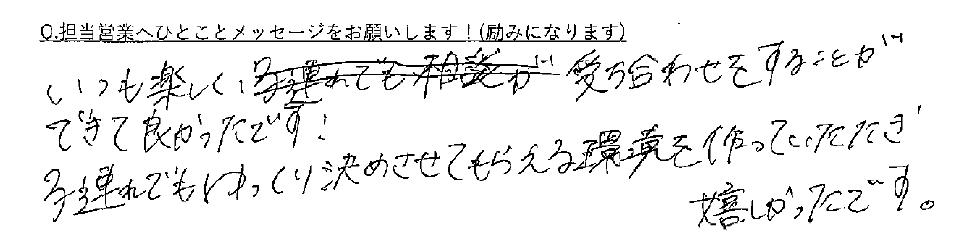 Q.担当営業へひとことメッセージをお願いします！(励みになります)
いつも楽しく子連れでも相談が 受ち合わせをすることが
できて良かったです！
子連れでもゆっくり決めさせてもらえる環境を作っていただき
嬉しかったです。